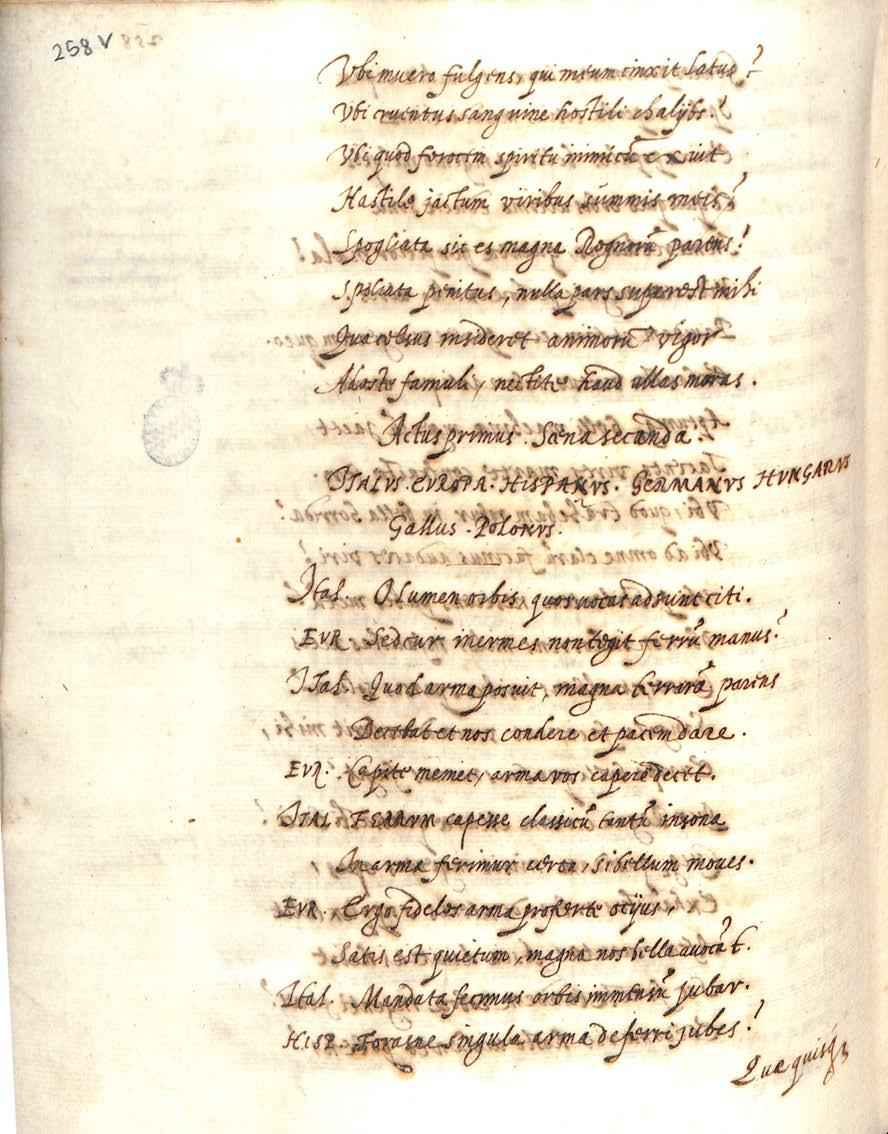 258 v
Vbi mucro fulgens, qui meum cinxit latus?
Vbi cruentus sanguine hostili chalybs?
Vbi quod ferocem spiritū inimicū exuit
Hastile jactum viribus summis meis?
Spogliata sic es magna Regnorū parens!
Spoliata penitus, nulla pars superest mihi
Qua celsus insideret animorū vigor
Adeste famuli, nectite haud ullas moras.
Actus primus. Scena secunda.
ITALVS. EVROPA. HISPANVS. GERMANVS HVNGARVS
Gallus. POLONVS.
Ital. O lumen orbis, quos vocas adsunt citi.
EVR. Sed cur inermes non tegit ferrū manus?
Ital. Quod arma posuit, magna terrarū parens
Decebat et nos condere et pacem dare.
EVR. Capite memet, arma vos capere decet.
ITAL FERRVM capesse classicū tantū insona
In arma ferimur certa, si bellum moues.
EVR. Ergo fideles arma proferte ocijus,
Satis est quietum, magna nos bella auocāt.
Ital. Mandata fecimus orbis immensū jubar.
HISP. singula arma deferri jubes?
Quæ quisq3